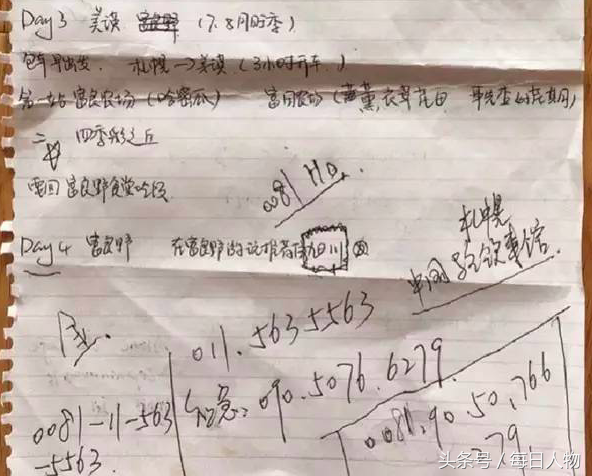 Day 3 美瑛 富良野 (7.8月旺季)
包车早出发. 札幌→美瑛 (3小时开车.)
第一站 富良农场 (哈密瓜) 富田农场 (薰衣草花田 事先查好花期)
二 四季彩之丘
回富良野食堂吃饭
0081 HO.
Day 4 富良野 在富良野的话推荐 旭川
札幌
中国 领事馆.
011.563 5563
090.5076.6279
0081-11-563
-5563.
0081.90.50.766
79
头条号 / 每日人物